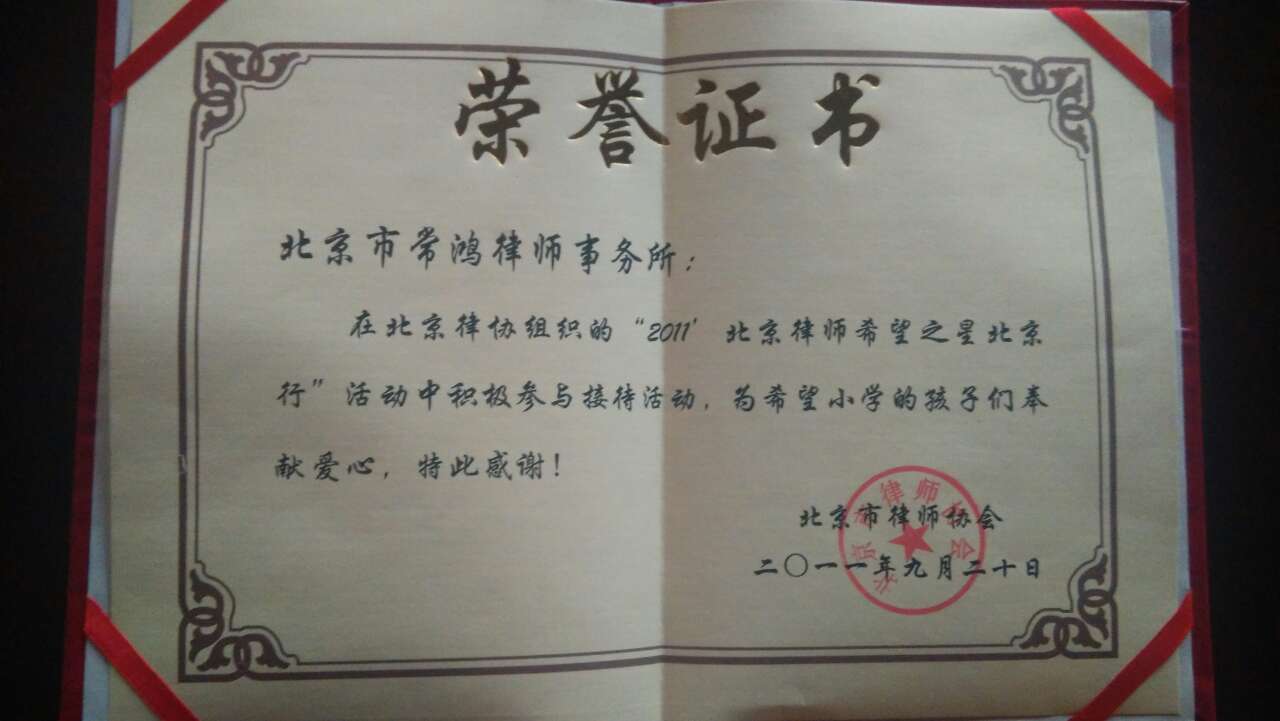 荣誉证书
北京市常鸿律师事务所：
在北京律协组织的“2011’北京律师希望之星北京
行”活动中积极参与接待活动，为希望小学的孩子们奉
献爱心，特此感谢！
北京市律师协会
二〇一一年九月二十日
北京市律师协会